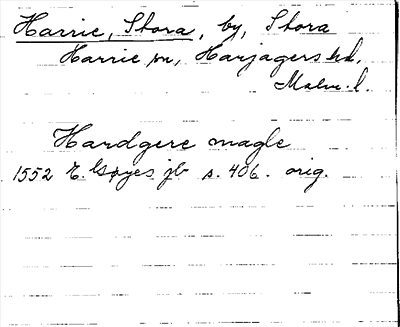 Harrie, Stora, by, Stora
Harrie sn, Harjagers hd,
Malm. l.
Hardgere magle
1552 E. Gøyes jb s. 406. orig.